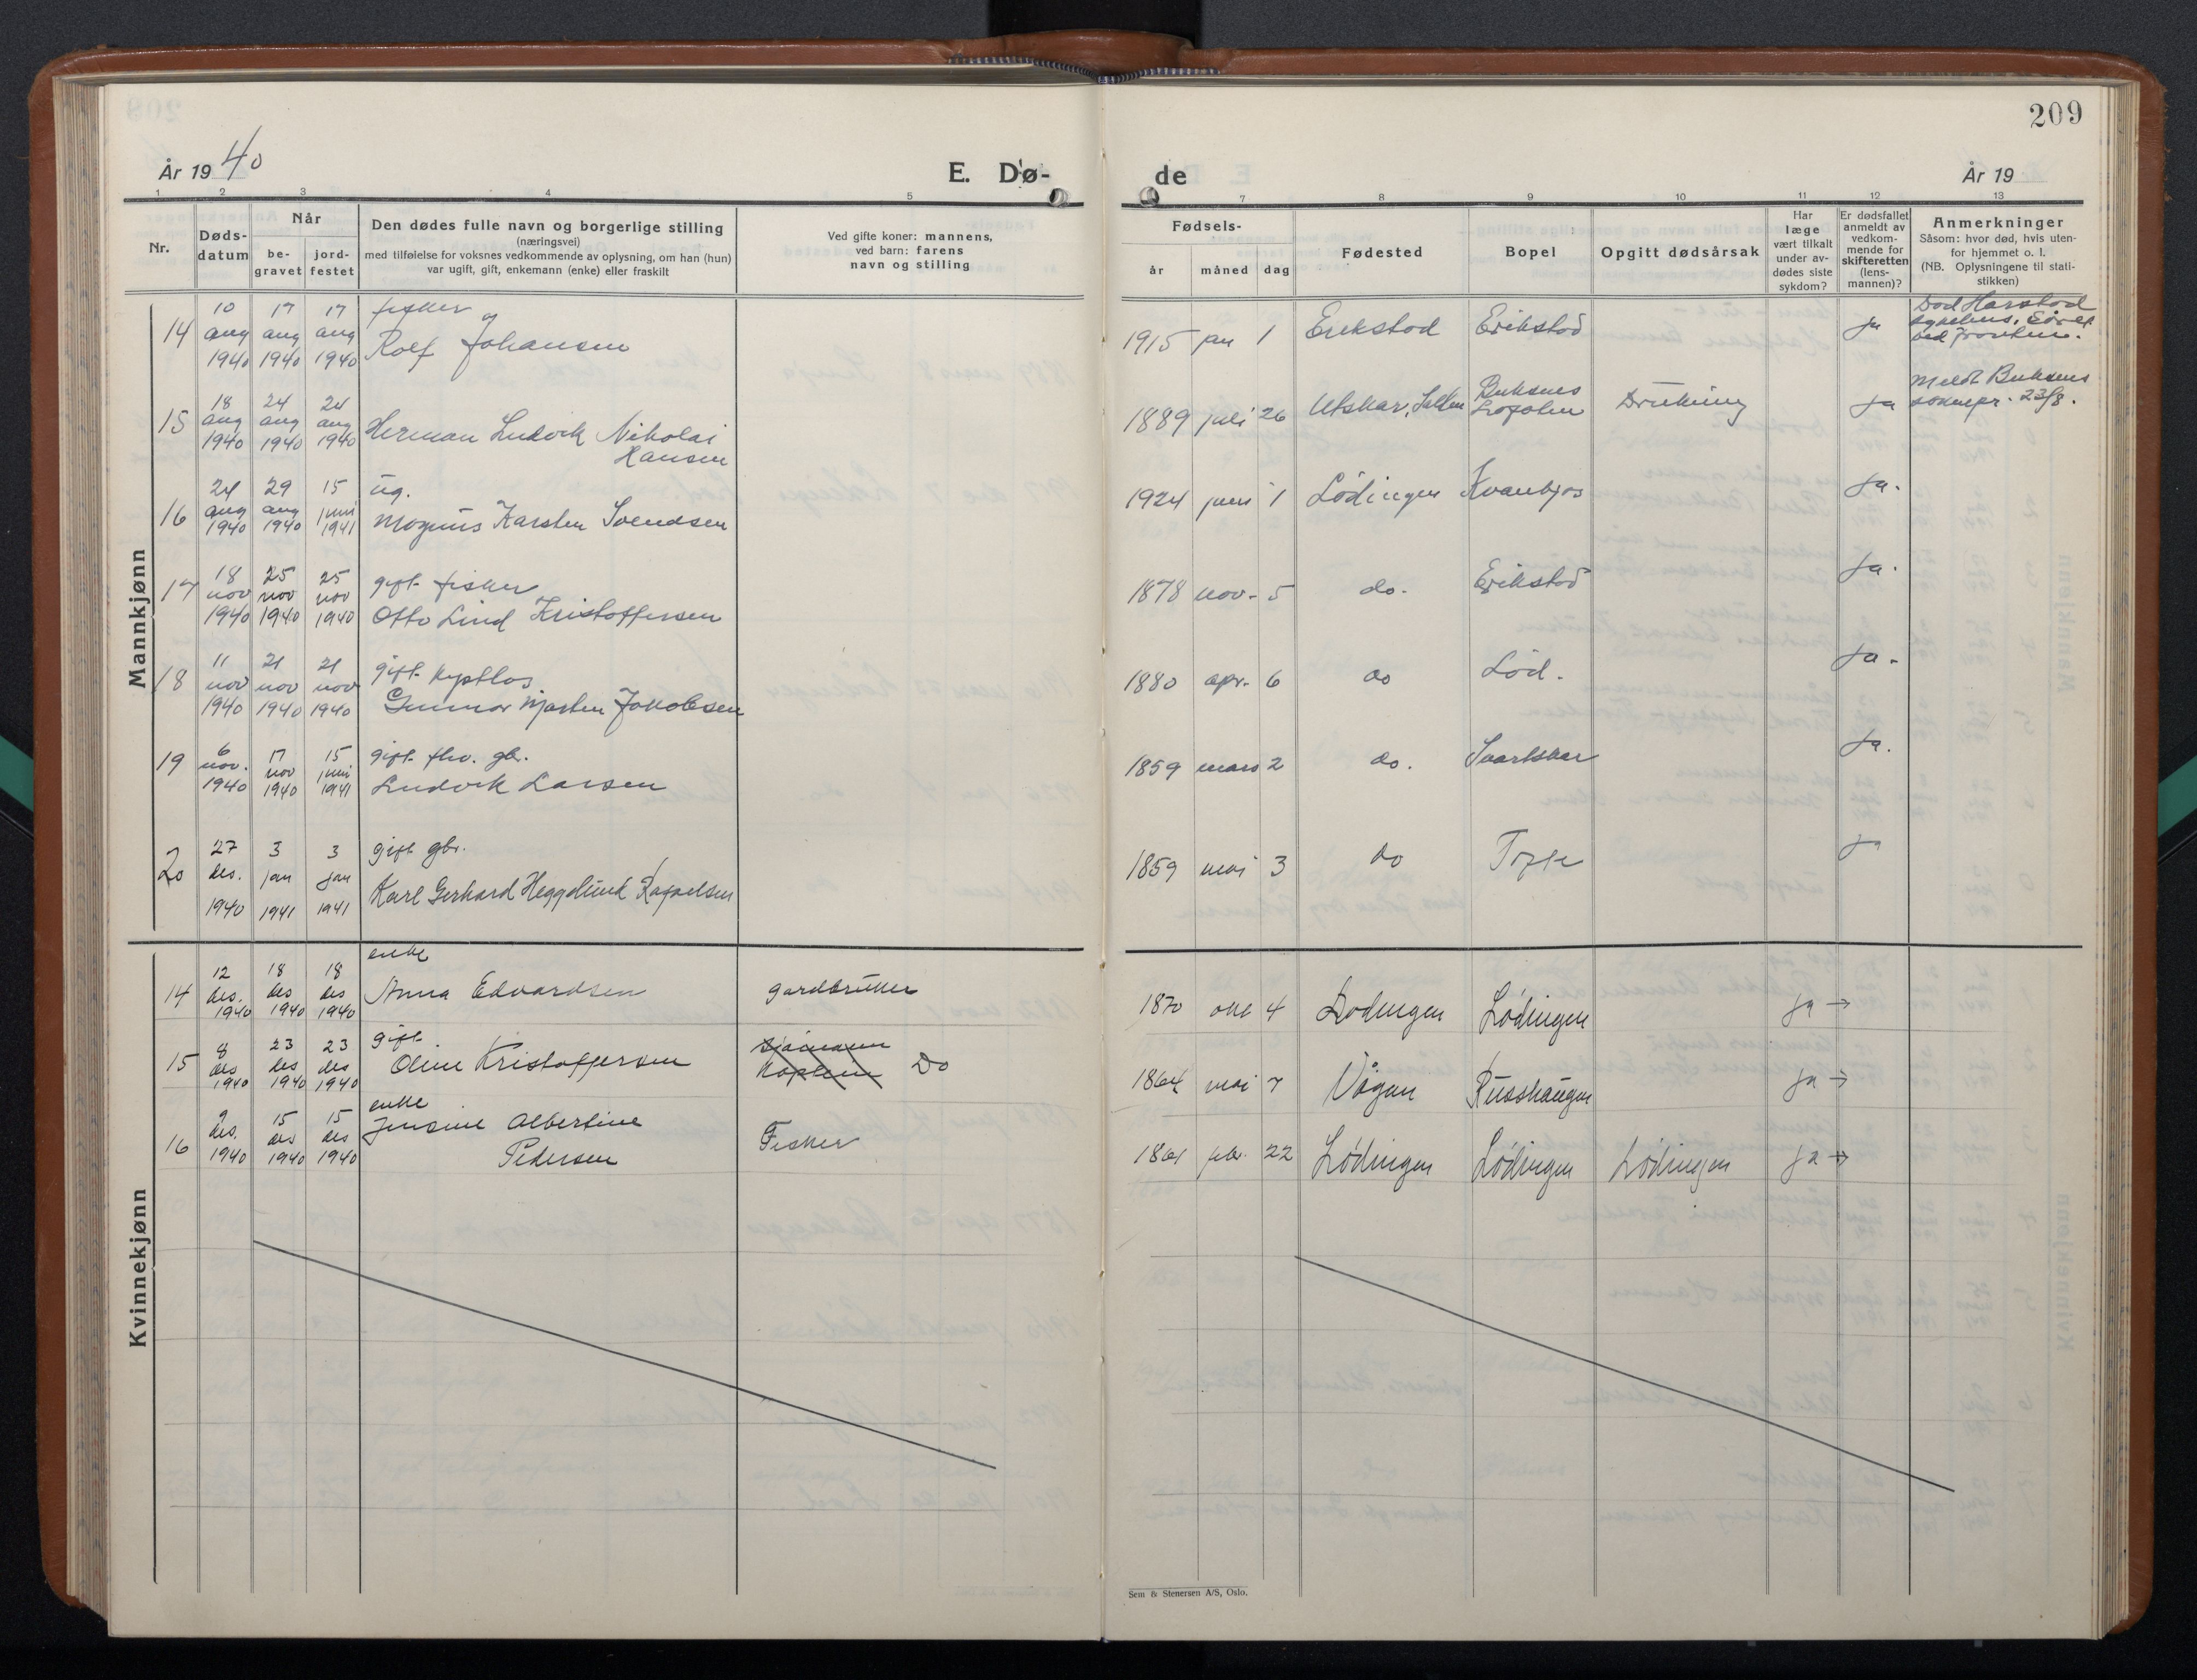 209
År 1940
E. Dø-
de
År 19
1 2 3 4 5
7 8 9 10 11 12 13
Nr.
Døds-
datum
Når
be-
gravet
jord-
festet
Den dødes fulle navn og borgerlige stilling
(næringsvei)
med tilføielse for voksnes vedkommende av oplysning, om han (hun)
var ugift, gift, enkemann (enke) eller fraskilt
Ved gifte koner: mannens,
ved barn: farens
navn og stilling
Fødsels-
år
måned
dag
Fødested
Bopel
Opgitt dødsårsak
Har
læge
vært tilkalt
under av-
dødes siste
sykdom?
Er dødsfallet
anmeldt av
vedkom-
mende for
skifteretten
(lens-
mannen)?
Anmerkninger
Såsom: hvor død, hvis uten-
for hjemmet o. l.
(NB. Oplysningene til stati-
stikken)
Mannkjønn
14
10 aug 1940
17 aug 1940
17 aug 1940
fisker
Rolf Johansen
1915 jan 1 Erikstad Erikstad ja
Død Harstad
sykehus. Såret
ved fronten.
15
18 aug 1940
24 aug 1940
24 aug 1940
Herman Ludvik Nikolai
Hansen
1889 juli 26
Buksnes
Lofoten
Drukning ja
Meldt Buksnes
soknepr. 23/8.
16
24 aug 1940
29 aug 1940
15 juni 1941
ug.
Magnus Karsten Svendsen
1924 juni 1 Lødingen ja.
17
18 nov 1940
25 nov 1940
25 nov 1940
gift fisker
Otto Lind Kristoffersen
1878 nov. 5 do. Erikstad ja.
18
11 nov 1940
21 nov 1940
21 nov 1940
gift
Gunnar Jakobsen
1880 apr. 6 do Lød. ja.
19
6 nov. 1940
17 nov 1940
15 juni 1941
gift fhv. gbr.
Ludvik Larsen
1859 mars 2 do. Svartskar ja.
20
27 des. 1940
3 jan 1941
3 jan 1941
gift gbr.
Karl Gerhard Heggelund Rafaelsen
1859 mai 3 do ja
Kvinnekjønn
14
12 des. 1940
18 des 1940
18 des 1940
enke
Anna Edvardsen
gardbruker
1870 okt 4 Lødingen Lødingen ja →
15
8 des 1940
23 des 1940
23 des 1940
gift
Oline Kristoffersen
Do
1864 mai 7 Vågan Russhaugen ja →
16
9 des. 1940
15 des 1940
15 des 1940
enke
Jensine Albertine
Pedersen
Fisker
1861 feb. 22 Lødingen Lødingen Lødingen ja →
Sem & Stenersen A/S, Oslo.